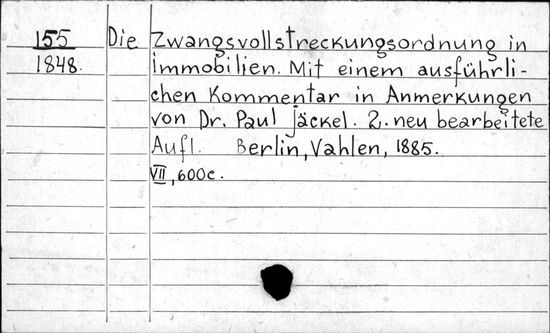 155 Die Zwangsvollstreckungsordnung in
1848. immobilien. Mit einem ausführli-
chen Kommentar in Anmerkungen
von Dr. Paul jäckel. 2. neu bearbeitete
Aufl. Berlin, Vahlen, 1885.
VII, 600c.